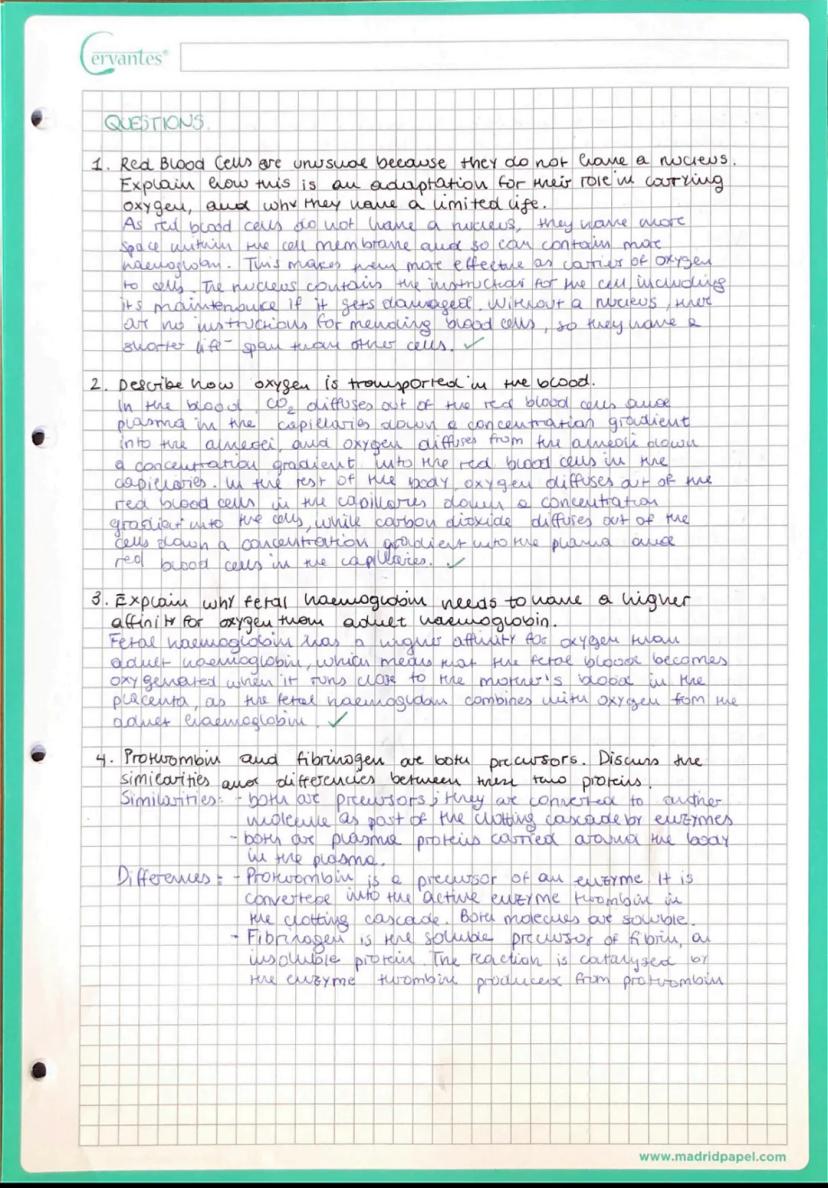 Cervantes®
QUESTIONS.
1. Red Blood Cells are unusual because they do not have a nucleus.
Explain how this is an adaptation for their role in carrying
oxygen, and why they have a limited life.
As red blood cells do not have a nucleus, they have more
space within the cell membrane and so can contain more
haemoglobin. This makes them more effective as carrier of oxygen
to cells. The nucleus contains the instructions for the cell, including
its maintenance if it gets damaged. Without a nucleus, there
are no instructions for mending blood cells, so they have a
shorter life-span than other cells. ✓
2. Describe how oxygen is transported in the blood.
In the blood, CO₂ diffuses out of the red blood cells and
plasma in the capillaries down a concentration gradient
into the alveoli, and oxygen diffuses from the alveoli down
a concentration gradient into the red blood cells in the
capillaries. In the rest of the body, oxygen diffuses out of the
red blood cells in the capillaries down a concentration
gradient into the cells, while carbon dioxide diffuses out of the
cells down a concentration gradient into the plasma and
red blood cells in the capillaries. ✓
3. Explain why fetal haemoglobin needs to have a higher
affinity for oxygen than adult haemoglobin.
Fetal haemoglobin has a higher affinity for oxygen than
adult haemoglobin, which means that the fetal blood becomes
oxygenated when it runs close to the mother's blood in the
placenta, as the fetal haemoglobin combines with oxygen from the
adult haemoglobin. ✓
4. Prothrombin and fibrinogen are both precursors. Discuss the
similarities and differences between these two proteins.
Similarities: - both are precursors; they are converted to another
molecule as part of the clotting cascade by enzymes
- both are plasma proteins carried around the body
in the plasma.
Differences: - Prothrombin is a precursor of an enzyme. It is
converted into the active enzyme thrombin in
the clotting cascade. Both molecules are soluble.
- Fibrinogen is the soluble precursor of fibrin, an
insoluble protein. The reaction is catalysed by
the enzyme thrombin produced from prothrombin
www.madridpapel.com